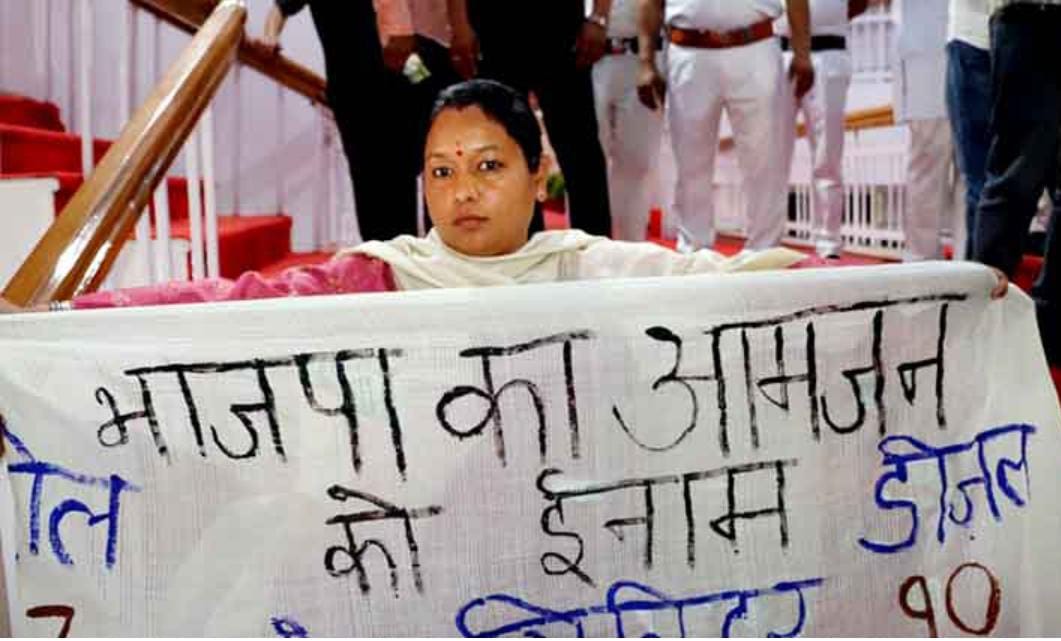 भाजपा का आमजन
को ईनाम डीज़ल
१०